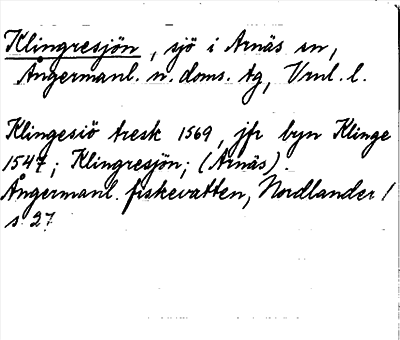 Klingresjön, sjö i Arnäs sn,
Ångermanl. n. doms. tg, Vrnl. l.
Klingesiö tresk 1569, jfr byn Klinge
1547; Klingresjön; (Arnäs).
Ångermanl. fiskevatten, Nordlander /
s. 27